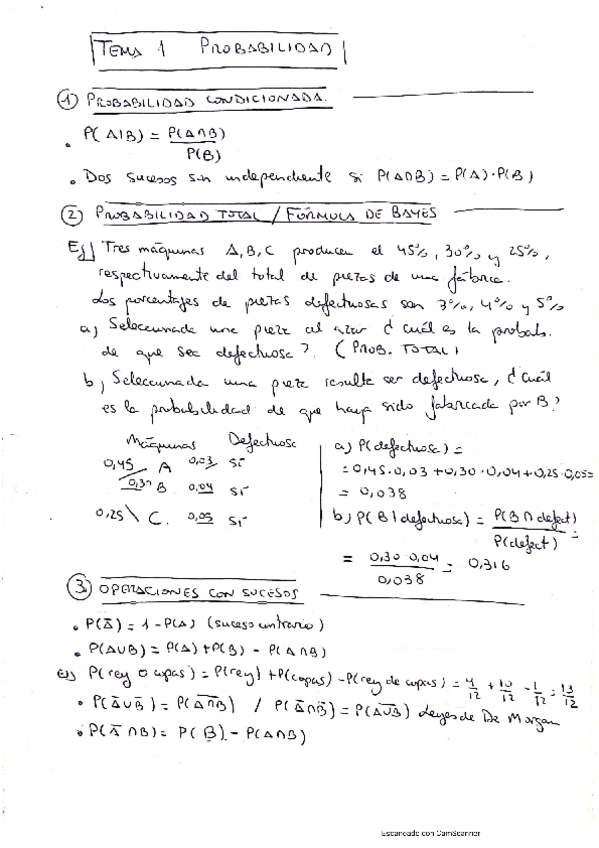 TEMA 1 PROBABILIDAD
① PROBABILIDAD CONDICIONADA.
• P(A|B) = P(A∩B)
P(B)
• Dos sucesos son independiente si P(A∩B) = P(A)·P(B)
② PROBABILIDAD TOTAL / FÓRMULA DE BAYES
Ej) Tres máquinas A, B, C producen el 45%, 30% y 25%,
respectivamente del total de piezas de una fábrica.
Los porcentajes de piezas defectuosas son 3%, 4% y 5%
a) Seleccionada una pieza al azar ¿cuál es la probab.
de que sea defectuosa? (PROB. TOTAL)
b) Seleccionada una pieza resulta ser defectuosa, ¿cuál
es la probabilidad de que haya sido fabricada por B?
Máquinas Defectuosa
0,45 A 0,03 Sí
0,30 B 0,04 Sí
0,25 C. 0,05 Sí
a) P(defectuosa) =
= 0,45·0,03 + 0,30·0,04 + 0,25·0,05=
= 0,038
b) P(B|defectuosa) = P(B∩defect) =
P(defect)
= 0,30·0,04 = 0,316
0,038
③ OPERACIONES CON SUCESOS
• P(Ā) = 1 - P(A) (suceso contrario)
• P(A∪B) = P(A) + P(B) - P(A∩B)
Ej) P(rey o copas) = P(rey) + P(copas) - P(rey de copas) = 4/12 + 10/12 - 1/12 = 13/12
• P(Ā∪B̄) = P(A̅∩̅B̅) / P(Ā∩B̄) = P(A̅∪̅B̅) Leyes de De Morgan
• P(Ā∩B) = P(B) - P(A∩B)
Escaneado con CamScanner